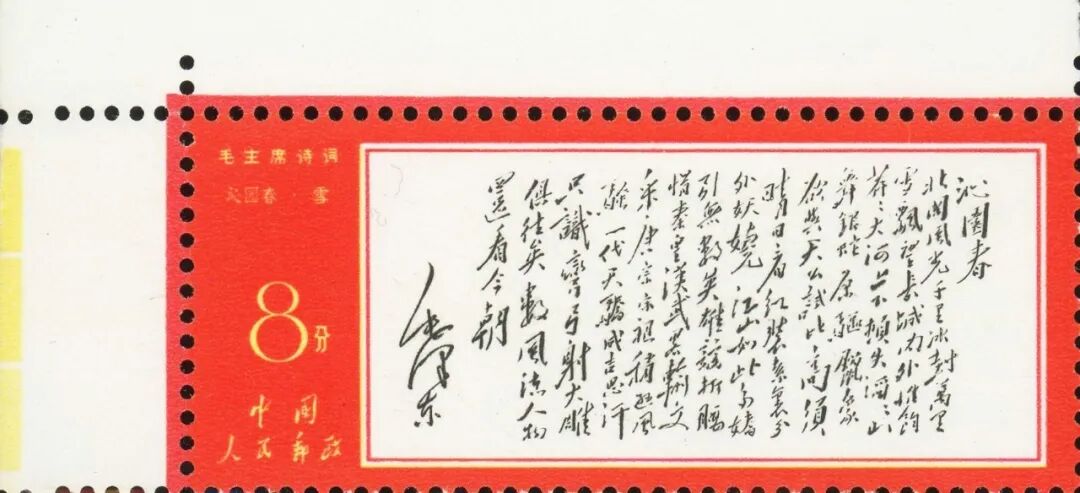 毛主席诗词
沁园春·雪
8分
中国
人民邮政
沁園春
北國風光千里冰封萬里
雪飄望長城内外惟餘
莽々大河上下頓失滔々山
舞銀蛇原驅蠟象
欲與天公試比高須
晴日看紅裝素裹分
外妖嬈江山如此多嬌
引無數英雄競折腰
惜秦皇漢武畧輸文
采唐宗宋祖稍遜風
騷一代天驕成吉思汗
只識彎弓射大雕
俱往矣數風流人物
還看今朝
毛澤東